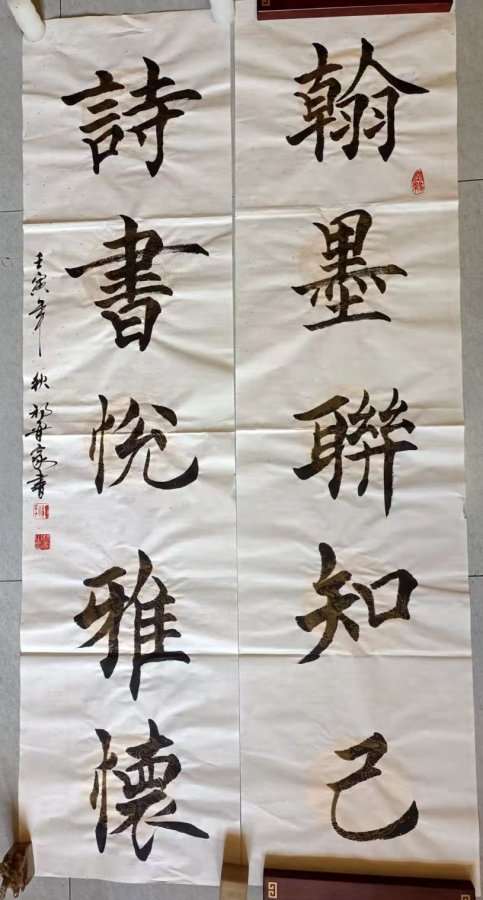 翰墨聯知己
詩書悅雅懷
壬寅年秋
書